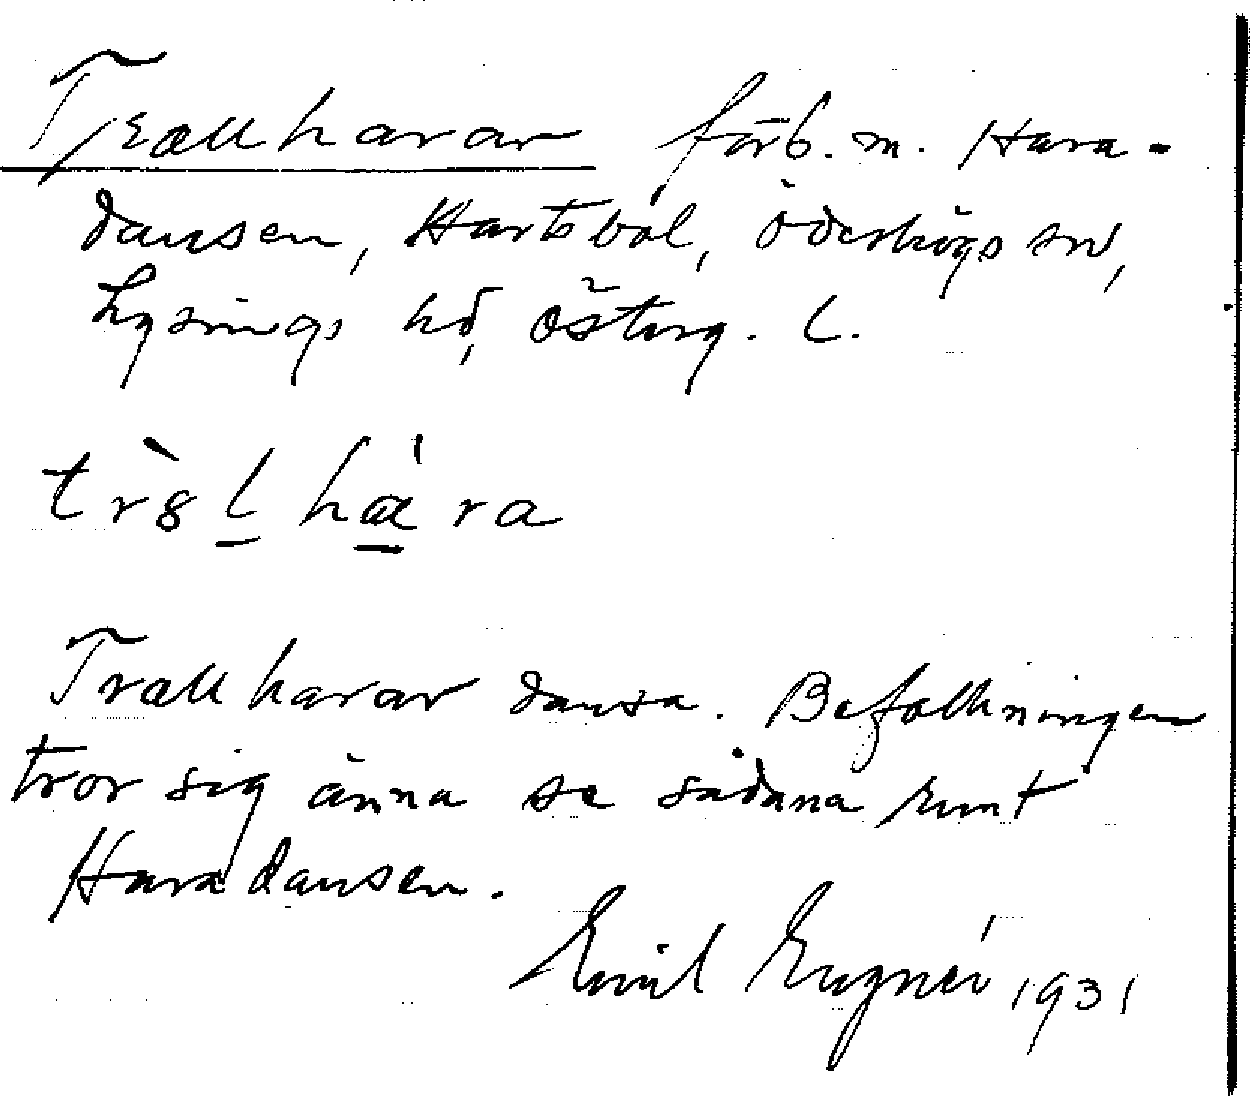 Trollharar förb. m. Hara-
dansen, Hartsbol, Ödeshögs sn,
Lysings hd, Österg. L.
trò̀l hà̱ra
Trollharar dansa. Befolkningen
tror sig änna se sådana runt
Haradansen.
Emil Eugnér 1931